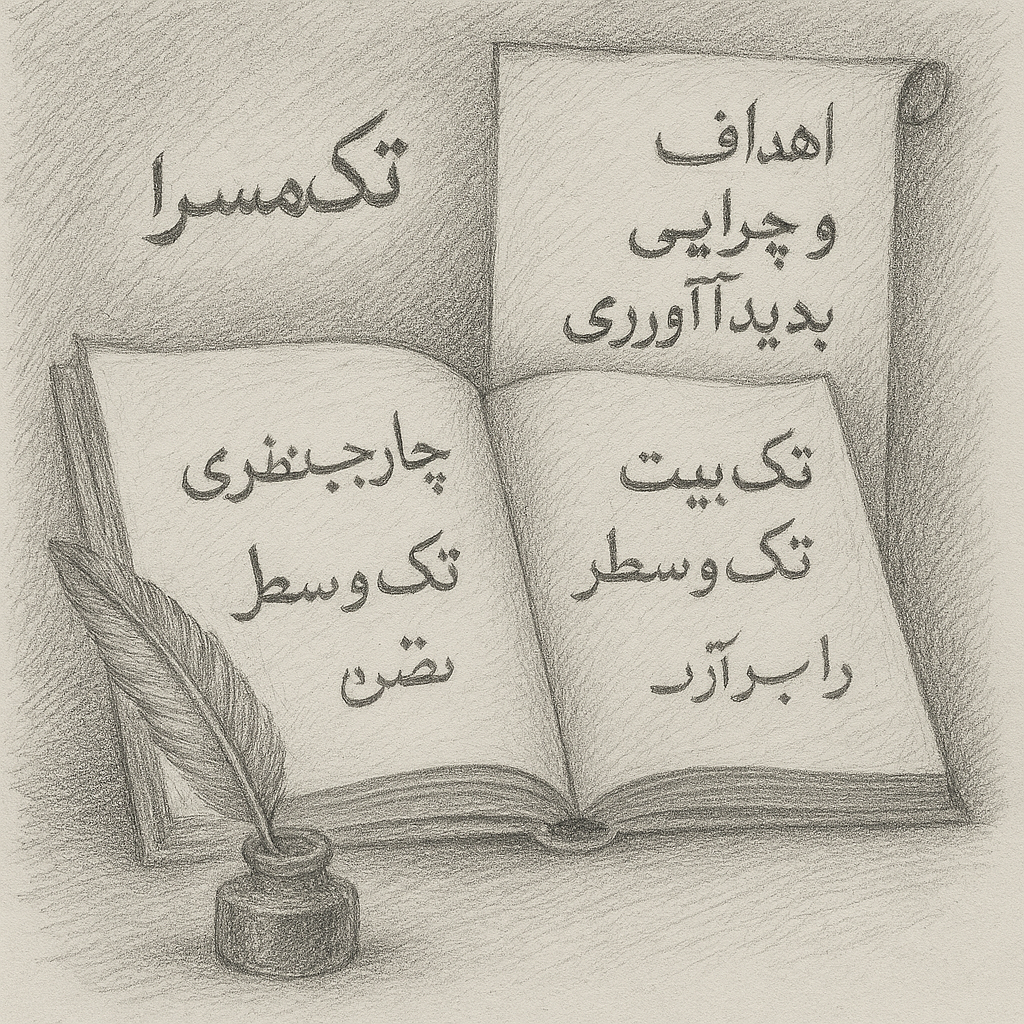 تک‌مسرا
اهداف
و چرایی
بدیدآآورری
تک‌بیت
تک‌وسطر
را برآزر
چارجبنظری
تک‌وسطر